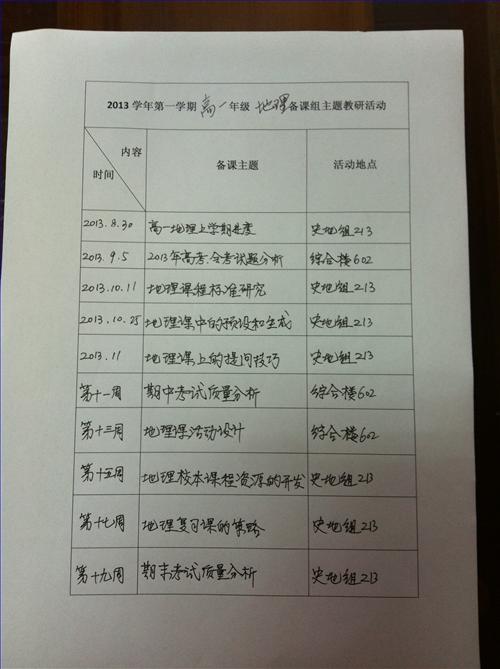 2013 学年第一学期 高一 年级 地理 备课组主题教研活动
内容
时间
备课主题
活动地点
2013.8.30 高一地理上学期进度 史地组213
2013.9.5 2013年高考、会考试题分析 综合楼602
2013.10.11 地理课程标准研究 史地组213
2013.10.25 地理课中的预设和生成 史地组213
2013.11 地理课上的提问技巧 史地组213
第十一周 期中考试质量分析 综合楼602
第十三周 地理课活动设计 综合楼602
第十五周 地理校本课程资源的开发 史地组213
第十七周 地理复习课的策略 史地组213
第十九周 期末考试质量分析 史地组213